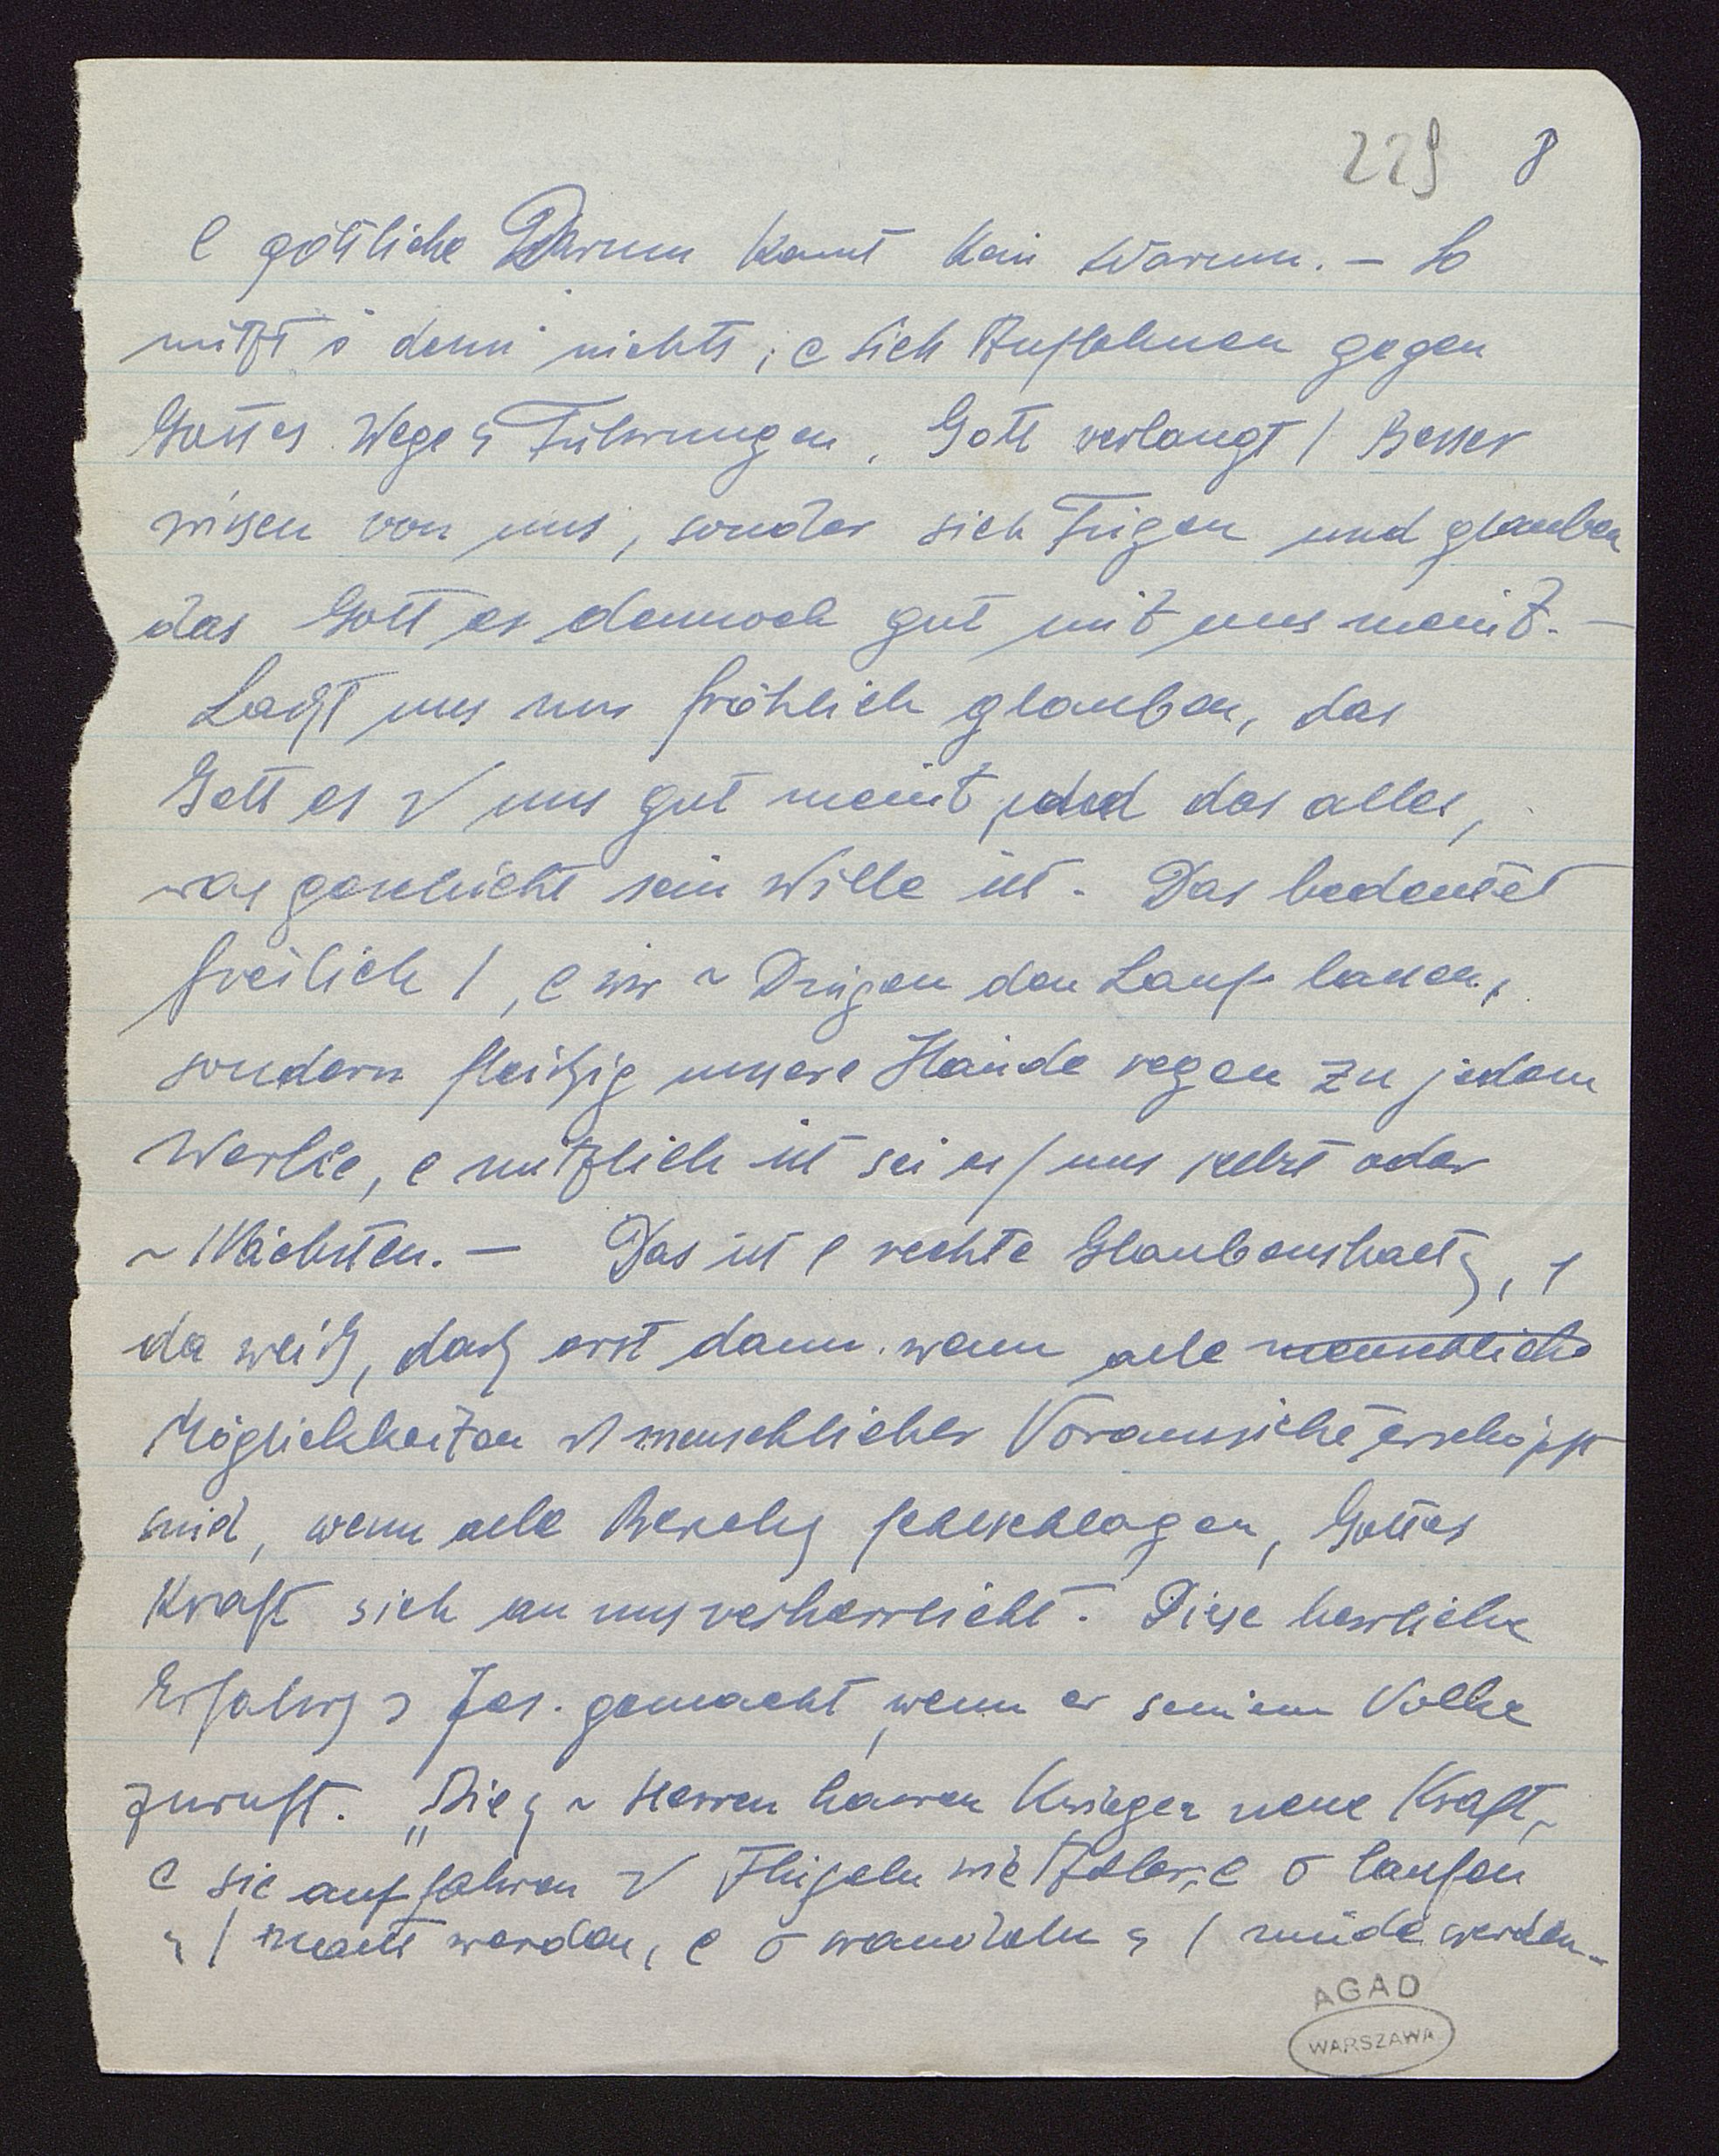 229 8
e göttliche Darum kennt kein Warum. – So
nützt i denn nichts, e sich Auflehnen gegen
Gottes Wege & Führungen. Gott verlangt / Besser
wissen von uns, sonder sich Fügen und glauben
das Gott es dennoch gut mit uns meint. –
Laßt uns nur fröhlich glauben, das
Gott es √ uns gut meint, und das alles,
was geschieht sein Wille ist. Das bedeutet
freilich /, e wir ~ Dingen den Lauf lassen,
sondern fleißig unsere Hände regen zu jedem
Werke, e nützlich ist sei es / uns selbst oder
~ Nächsten. – Das ist e rechte Glaubenshaltg, 1
da weiß, daß erst dann wenn alle menschliche
Möglichkeiten menschlicher Voraussicht erschöpft
sind, wenn alle fehlschlagen, Gottes
Kraft sich an uns verherrlicht. Diese herrliche
Erfahrg Jes. gemacht, wenn er seinem Volke
zuruft. „Die ~ Herren harren kriegen neue Kraft,
e sie auffahren √ Flügeln wie Adler, e σ laufen
& / matt werden, e σ wandeln & / müde werden –
AGAD
WARSZAWA